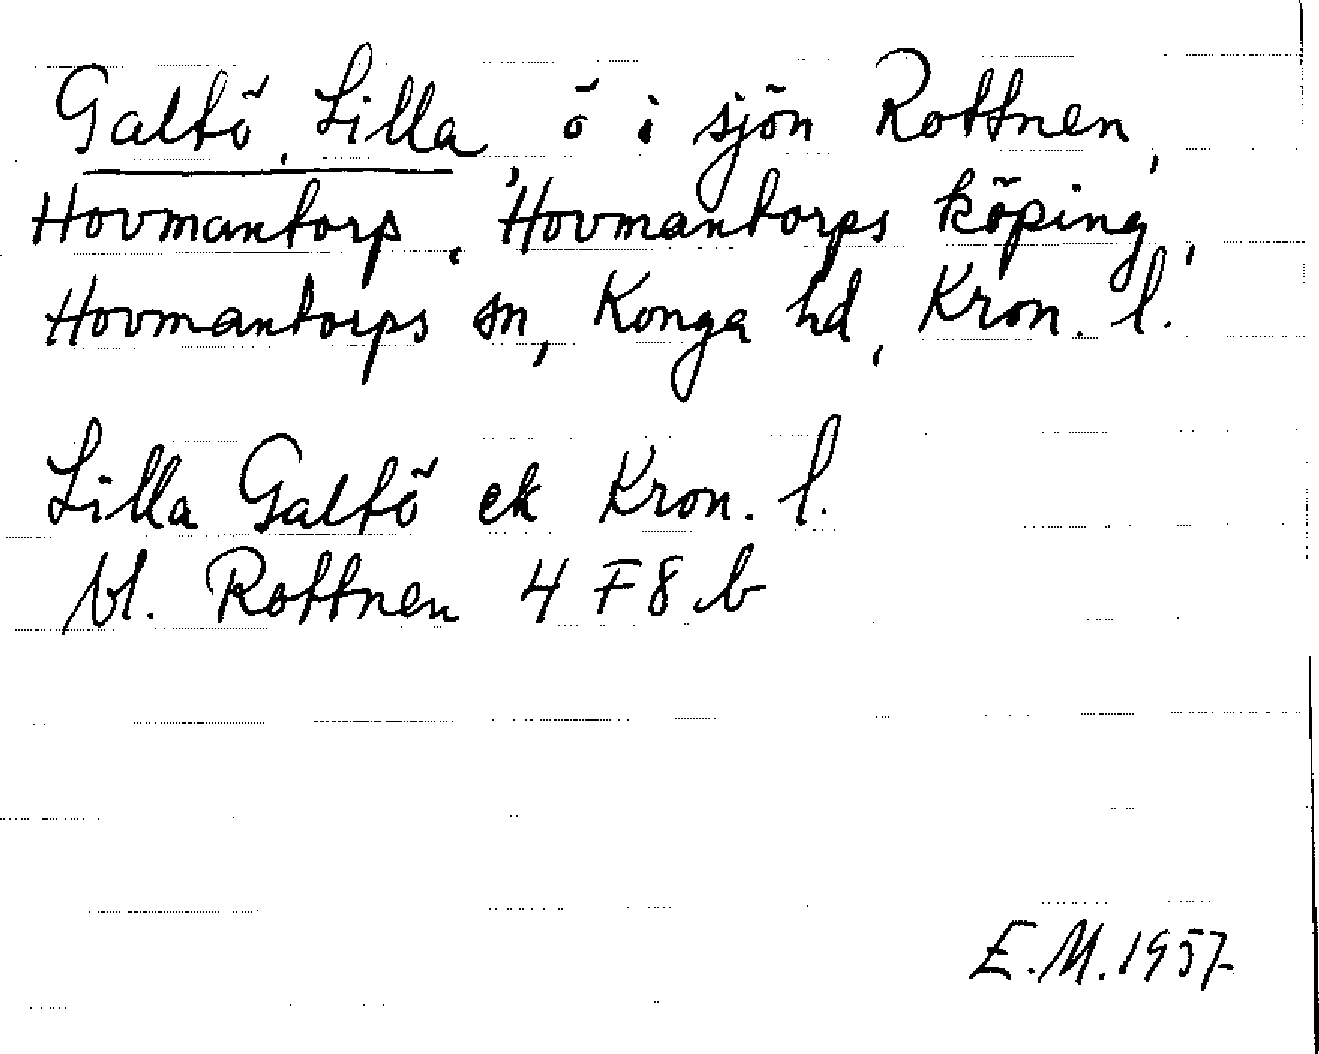 Galtö, Lilla, ö i sjön Rottnen,
Hovmantorp, Hovmantorps köping,
Hovmantorps sn, Konga hd, Kron. l.
Lilla Galtö ek Kron. l.
bl. Rottnen 4 F 8 b
E.M. 1957